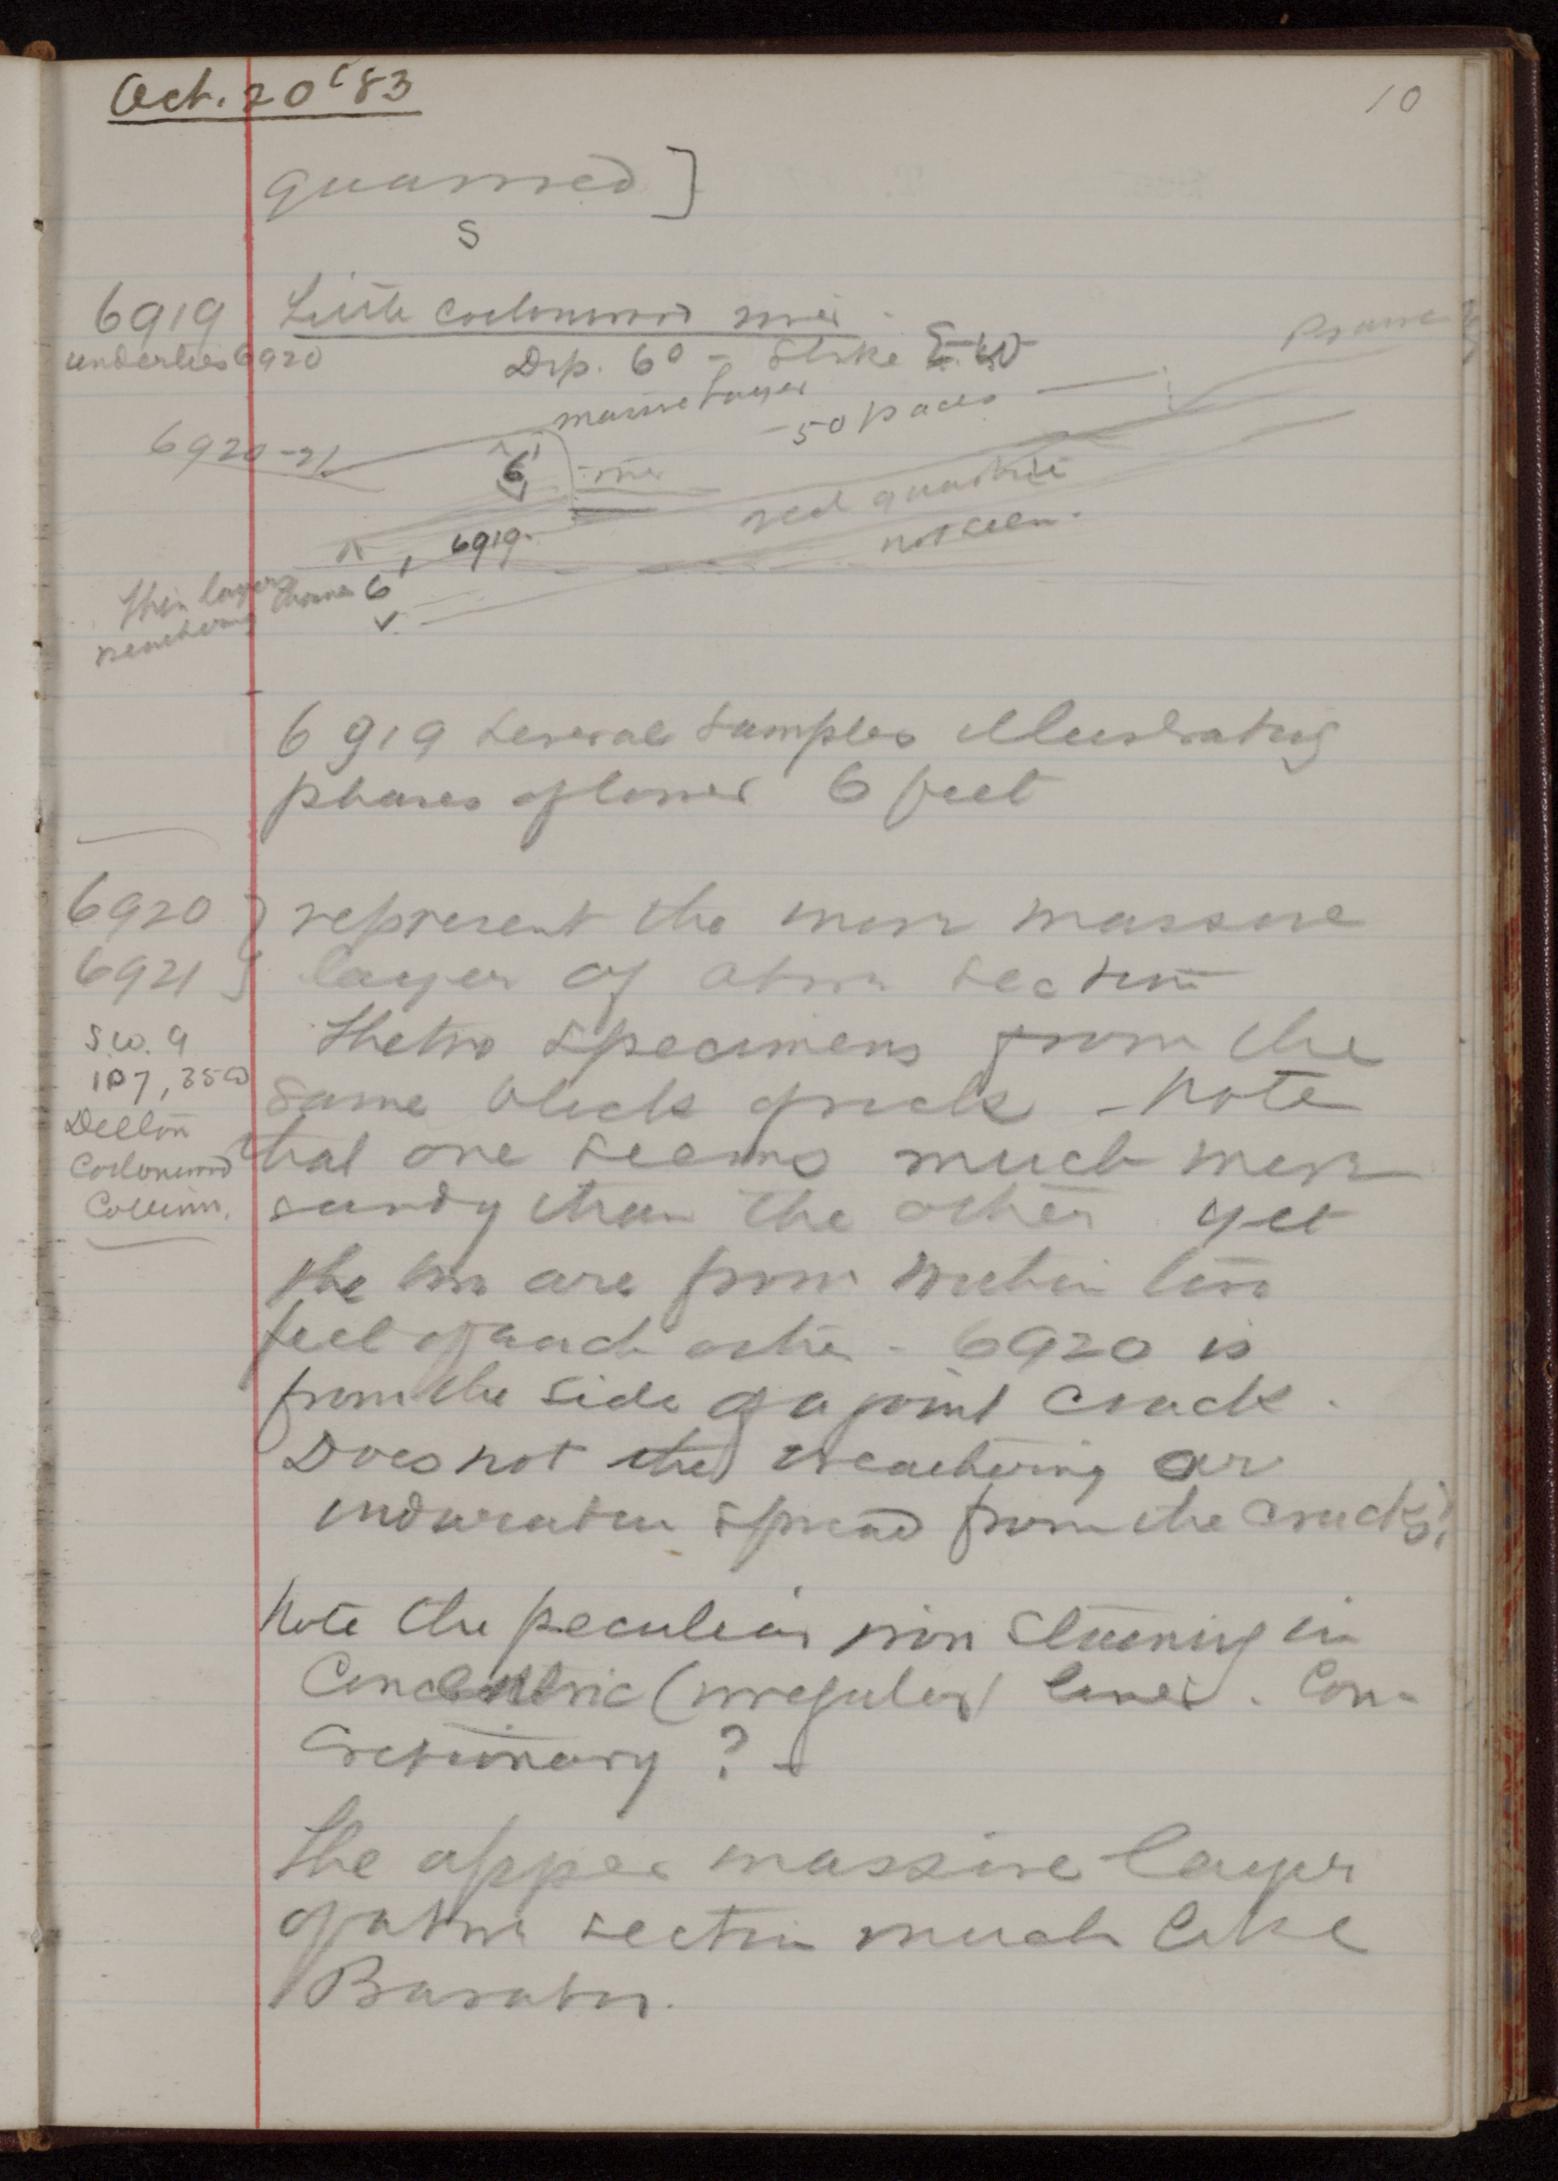 Oct. 20 '83
10
quarried ]
S
6919 Little Cottonwood river.
underlies 6920
Dip. 6° - Strike E-W
Prairie
massive layer
- 50 paces
6920-21
6'
river
red quartzite
not seen.
6919.
Thin layers
weathering
6'
6919 several samples illustrating
phases of lower 6 feet
6920 } represent the more massive
6921 } layer of above section
S.W. 9
107, 35W
Delton
Cottonwood
Co. Minn.
The two specimens from the
same block of rock - Note
that one seems much more
sandy than the other yet
the two are from within two
feet of each other - 6920 is
from the side of a joint crack.
Does not the weathering or
induration spread from the cracks?
Note the peculiar iron staining in
Concentric (irregular) lines. Con-
cretionary? -
The upper massive layer
of above section much like
Baraboo.